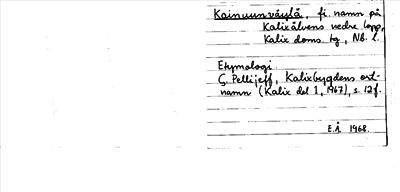 Kainuunväylä, fi. namn på
Kalixälvens nedre lopp,
Kalix doms. tg, Nb. l.
Etymologi
G. Pellijeff, Kalixbygdens ort-
namn (Kalix del 1, 1967), s. 12 f.
E.Å. 1968.